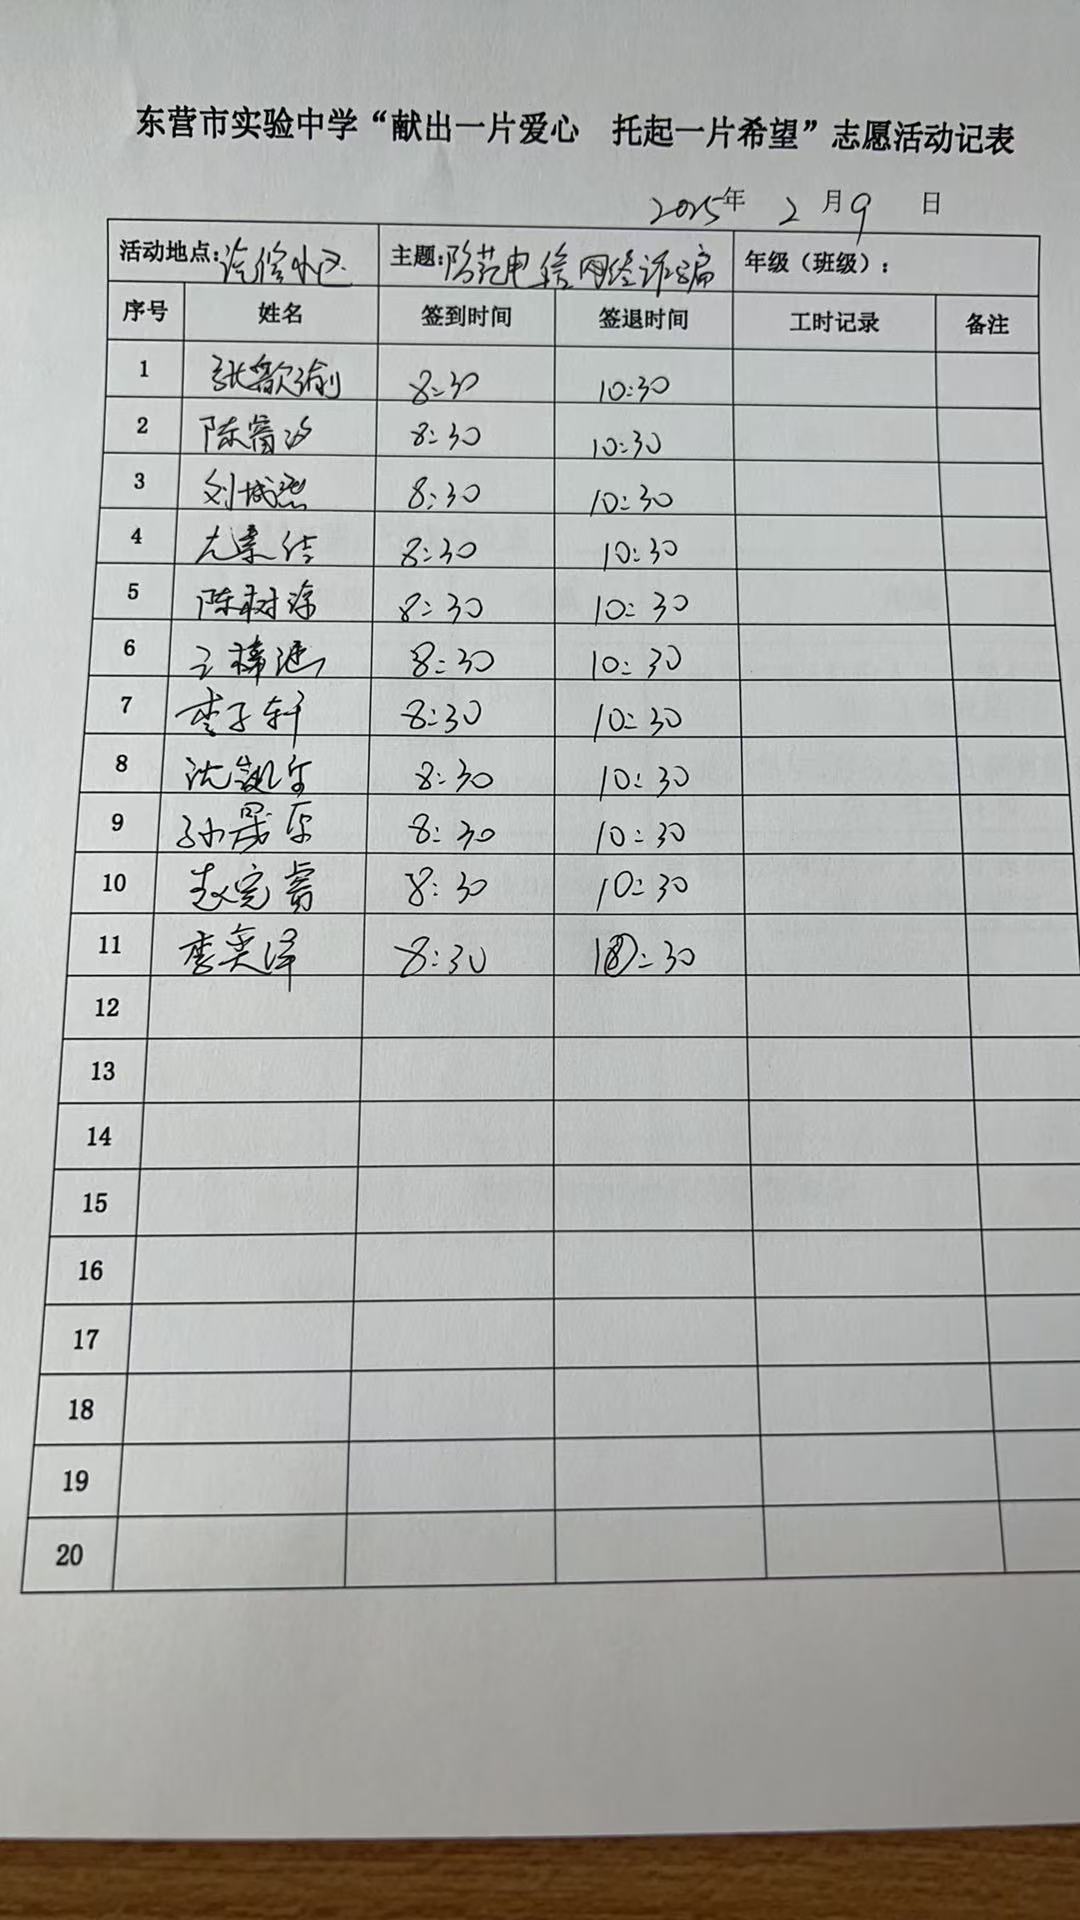 东营市实验中学“献出一片爱心 托起一片希望”志愿活动记表
2025年 2 月 9 日
活动地点:汽修小区 主题:防范电信网络诈骗 年级（班级）:
序号 姓名 签到时间 签退时间 工时记录 备注
1 张歆瑜 8:30 10:30
2 陈睿汐 8:30 10:30
3 8:30 10:30
4 8:30 10:30
5 陈树 8:30 10:30
6 8:30 10:30
7 李子轩 8:30 10:30
8 沈 8:30 10:30
9 孙晟 8:30 10:30
10 赵完 8:30 10:30
11 李奕泽 8:30 10:30
12
13
14
15
16
17
18
19
20